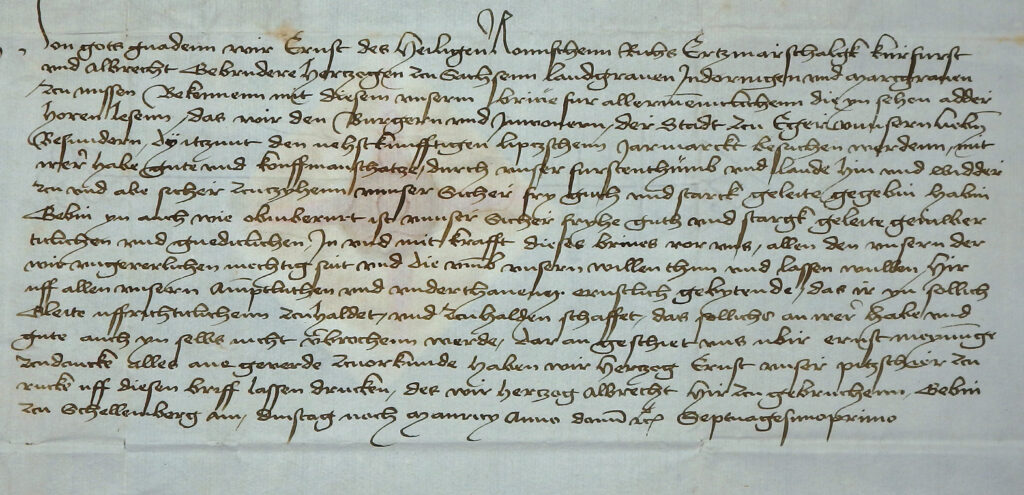 Von gots gnadenn wir Ernst des Heiligen Romischenn Richs Ertzmarschalgk kurfurst
und Albrecht Gebrudere Hertzogen zcu Sachsenn Landgrauen Indoringen und Marcgrauen
zcu missen Bekennenn mit diesem unserm briue fur allermeniclichenn die yn sehen adder
horen lesenn, das wir den Burgern und Inwonern, der Stadt zcu Eger unnsern liebin
Besundern, dy itzunt den nehstkunfftigen liptzschenn Jarmarckt besuchen werdenn, mit
irer habe gute und kouffmanschatze, durch unser furstenthumb und lande hin und widder
zcu und abe sicher zcuzyhenn unnser Sicher fry gut und starck geleite gegebin habin
Gebin yn auch wie obinberurt ist unnser Sicher fryhe guth und stargk geleite
und gnediclichen, In und mit krafft dieses briues vor uns, allen den unsern der
wir ungeuerlichen mechtig seit und die umb unsern willen thun und lassen wullen, Hir
uff allen unsern Amptluthen und underthannen ernstlich gebytende, das ir yn sollich
Gleite uffrichticlichenn zcuhaldet, und zcuhalden schaffet, das sollichs an irer habe und
gute auch yn selbs nicht vbrochenn werde, Dar an geschiet uns ubir ernst meynunge
zcudancke alles ane geuerde zcuorkunde haben wir Hertzog Ernst unser pitzschier zcu
rucke uff diesen briff lassen drucken, des wir Hertzog Albrecht hir zcu gebruchenn, Gebin
zcu Schellemberg am, dinstag noch Mauricy Anno domini Septuagesimoprimo